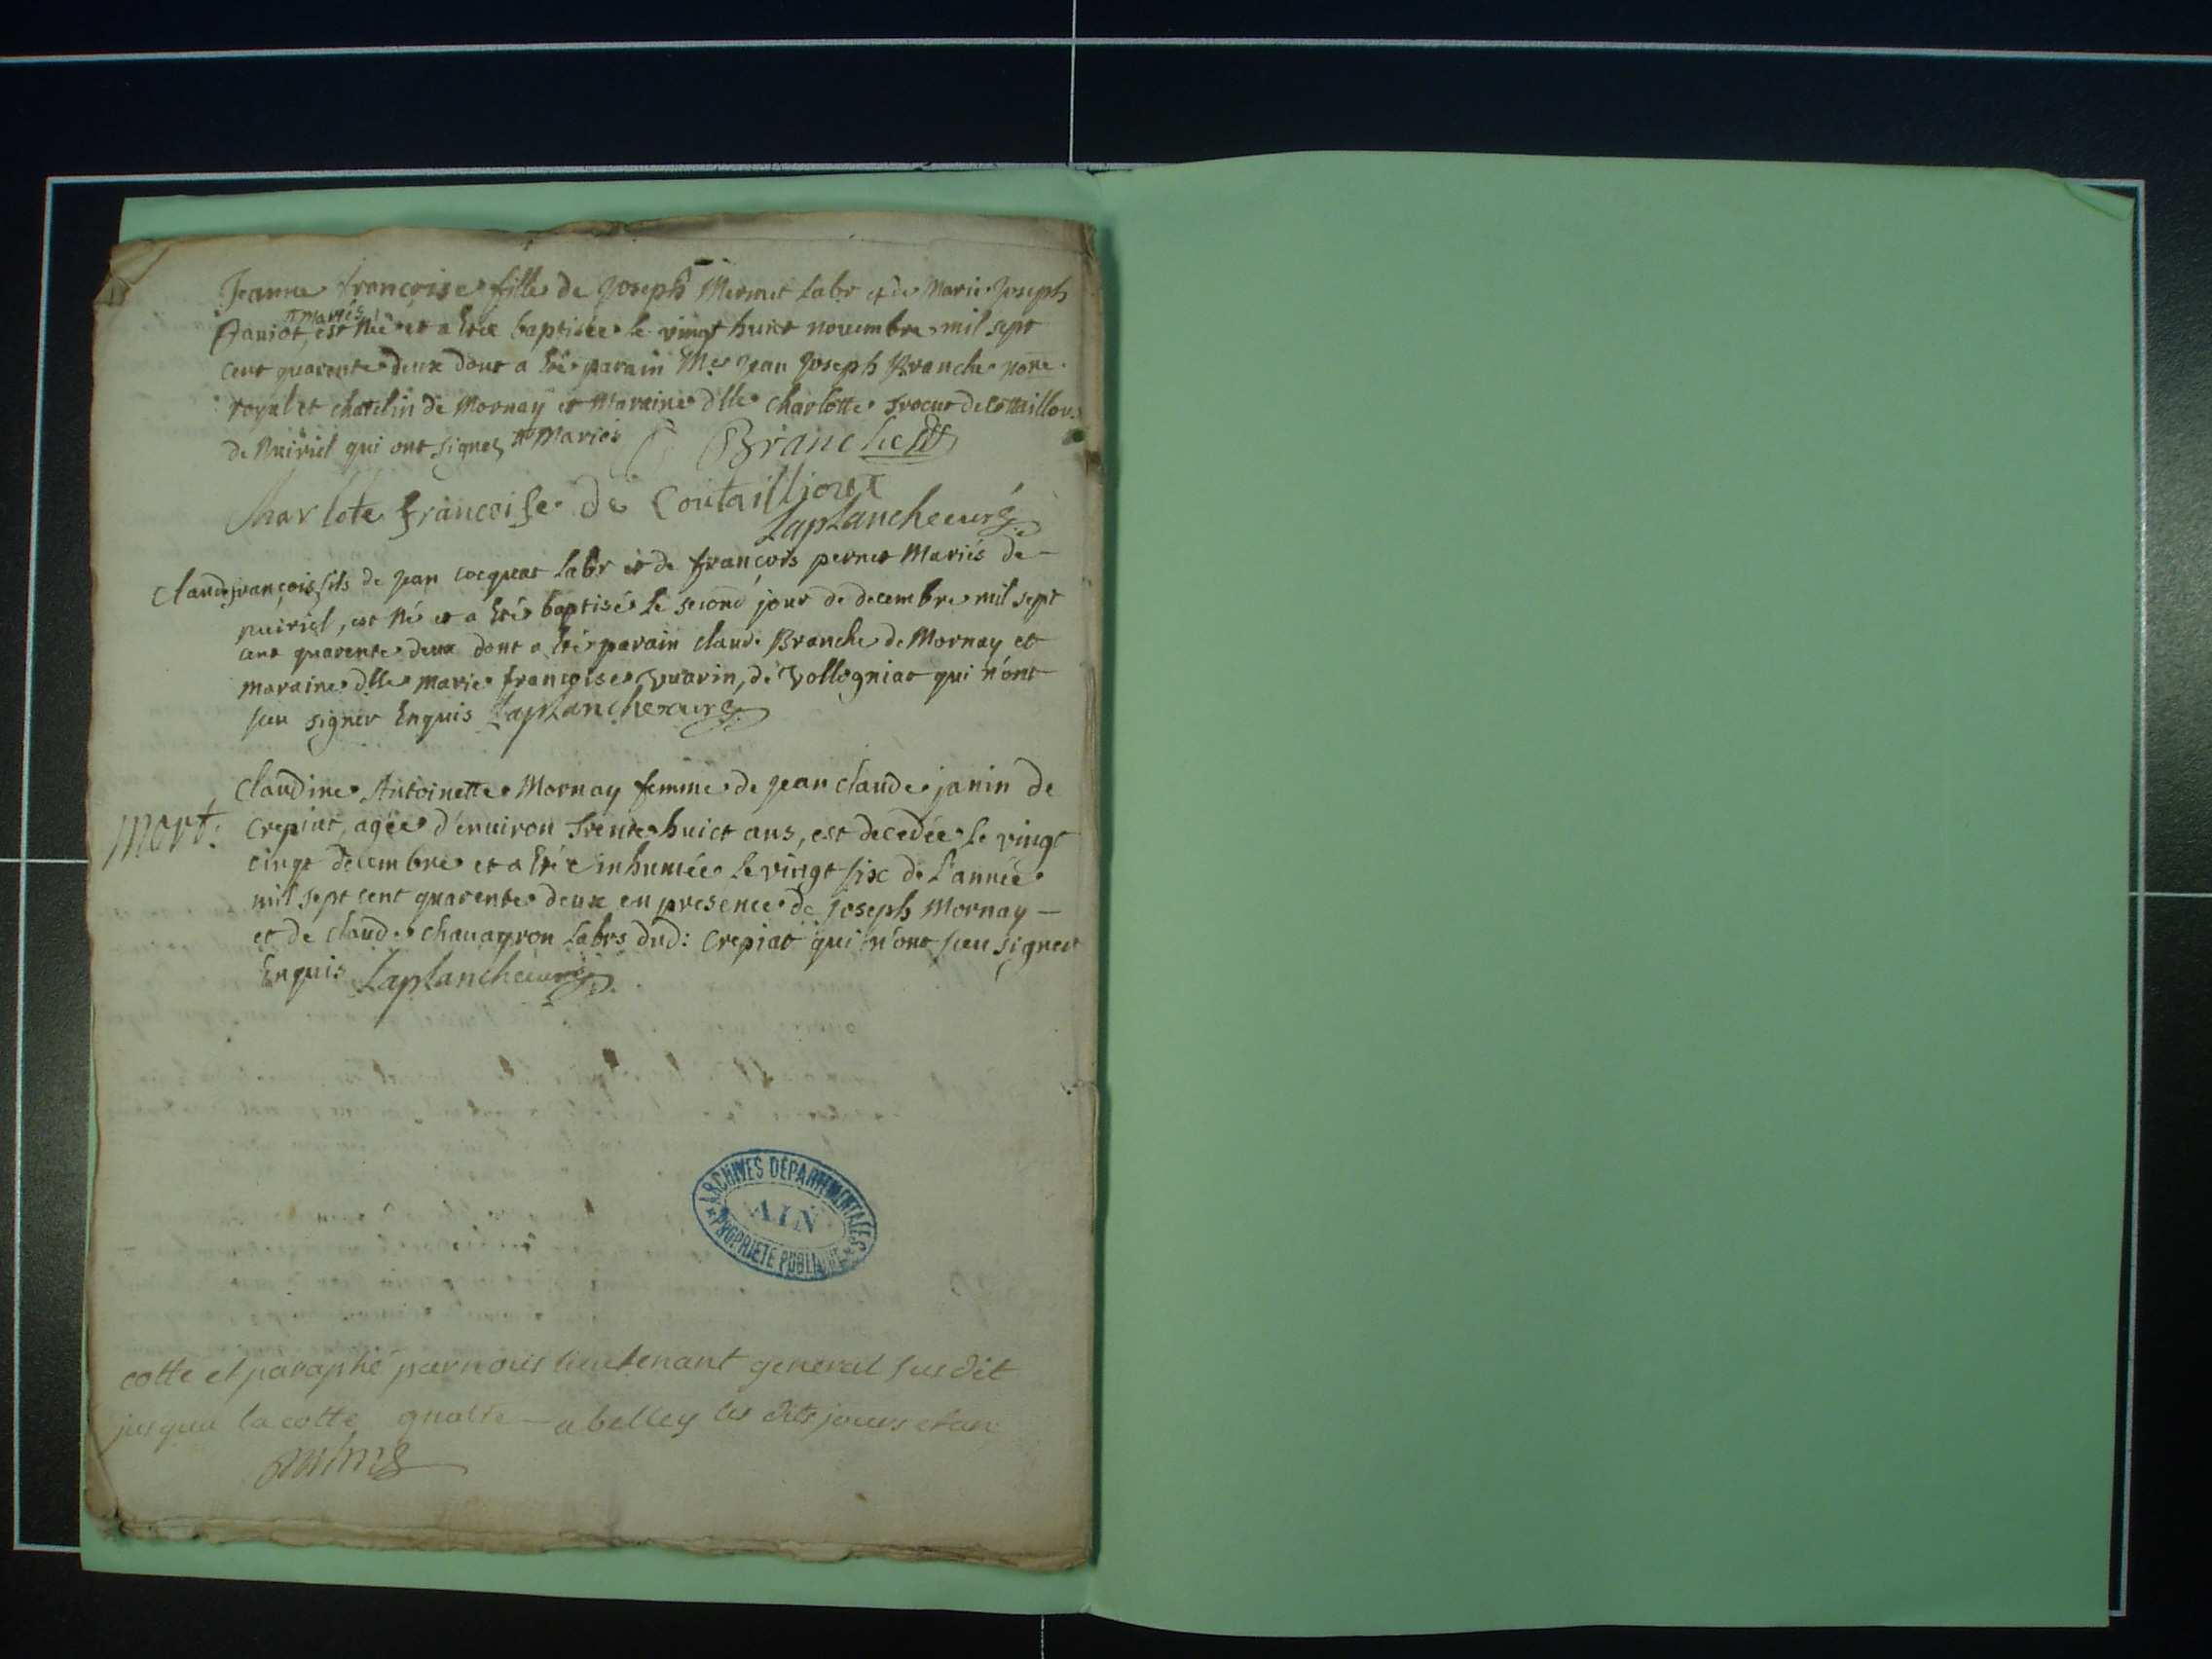 Jeanne françoise fille de Joseph Mermet Labr et de Marie Joseph
# Mariés
Janiot, est Née et a Eté baptisée le vingt huict novembre mil sept
cent quarente deux dont a Eté parain Me Jean Joseph Branche nore
royal et chatelin de Mornay et Maraine dlle charlotte
de Buiriel qui ont signes # Mariés
Branche
Charlote françoise de Coutailliout
Laplanche curé
Claude françois fils de Jean cocquat Labr et de françois pernet Mariés de
puiriel, est Né et a Eté baptisé le second jour de decembre mil sept
cent quarente deux dont a Eté parain claude Branche de Mornay et
maraine dlle marie françoise vuarin, de vollogniat qui n'ont
sceu signer Enquis Laplanche curé
Claudine Antoinette Mornay femme de Jean claude janin de
Mort: Crepiat, agée d'enuiron trente huict ans, est decedée le vingt
cinqt decembre et a Eté inhumée le vingt six de l'année
mil sept cent quarente deux en presence de joseph Mornay
et de claude chauagron Labrs dud: Crepiat qui n'ont sceu signer
Enquis Laplanche curé
ARCHIVES DÉPARTEMENTALES
AIN
PROPRIÉTÉ PUBLIQUE
cotte et paraphé par nous lieutenant general susdit
jusqua la cotte quatre a belley les dits jours et an